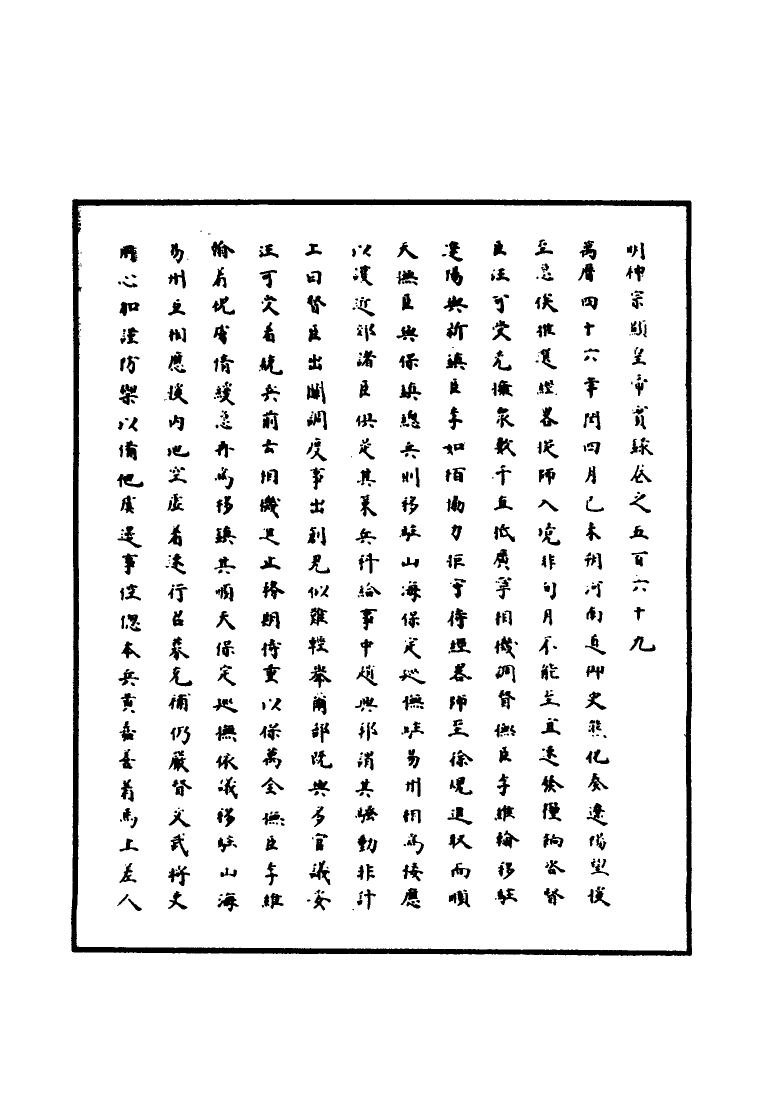 明神宗顯皇帝實錄卷之五百六十九
萬曆四十六年閏四月己未朔河南道御史熊化奏遼陽望援
至急俟推選經畧從師入境非旬月不能至宜速發糧餉咨督
臣汪可受先擁衆數千直抵廣寧相機調督撫臣李維翰移駐
遼陽與新鎮臣李如栢協力拒害待經畧師至徐硯進取而順
天撫臣與保鎮總兵則移駐山海保定廵撫駐易州相為接應
以濩近郊諸臣俱是其策兵科給事中趙興邦謂其騷動非計
上曰督臣出關調度事出創見似難輕舉爾部既與多官議妥
汪可受着統兵前去相機進止務期持重以保萬全撫臣李維
翰着視虜情緩急再為移鎮其順天保定廵撫依議移駐山海
易州互相應援內地空虛着速行召募充補仍嚴督文武將吏
用心加謹防禦以備他虞邊事倥傯本兵黃嘉善着馬上差人